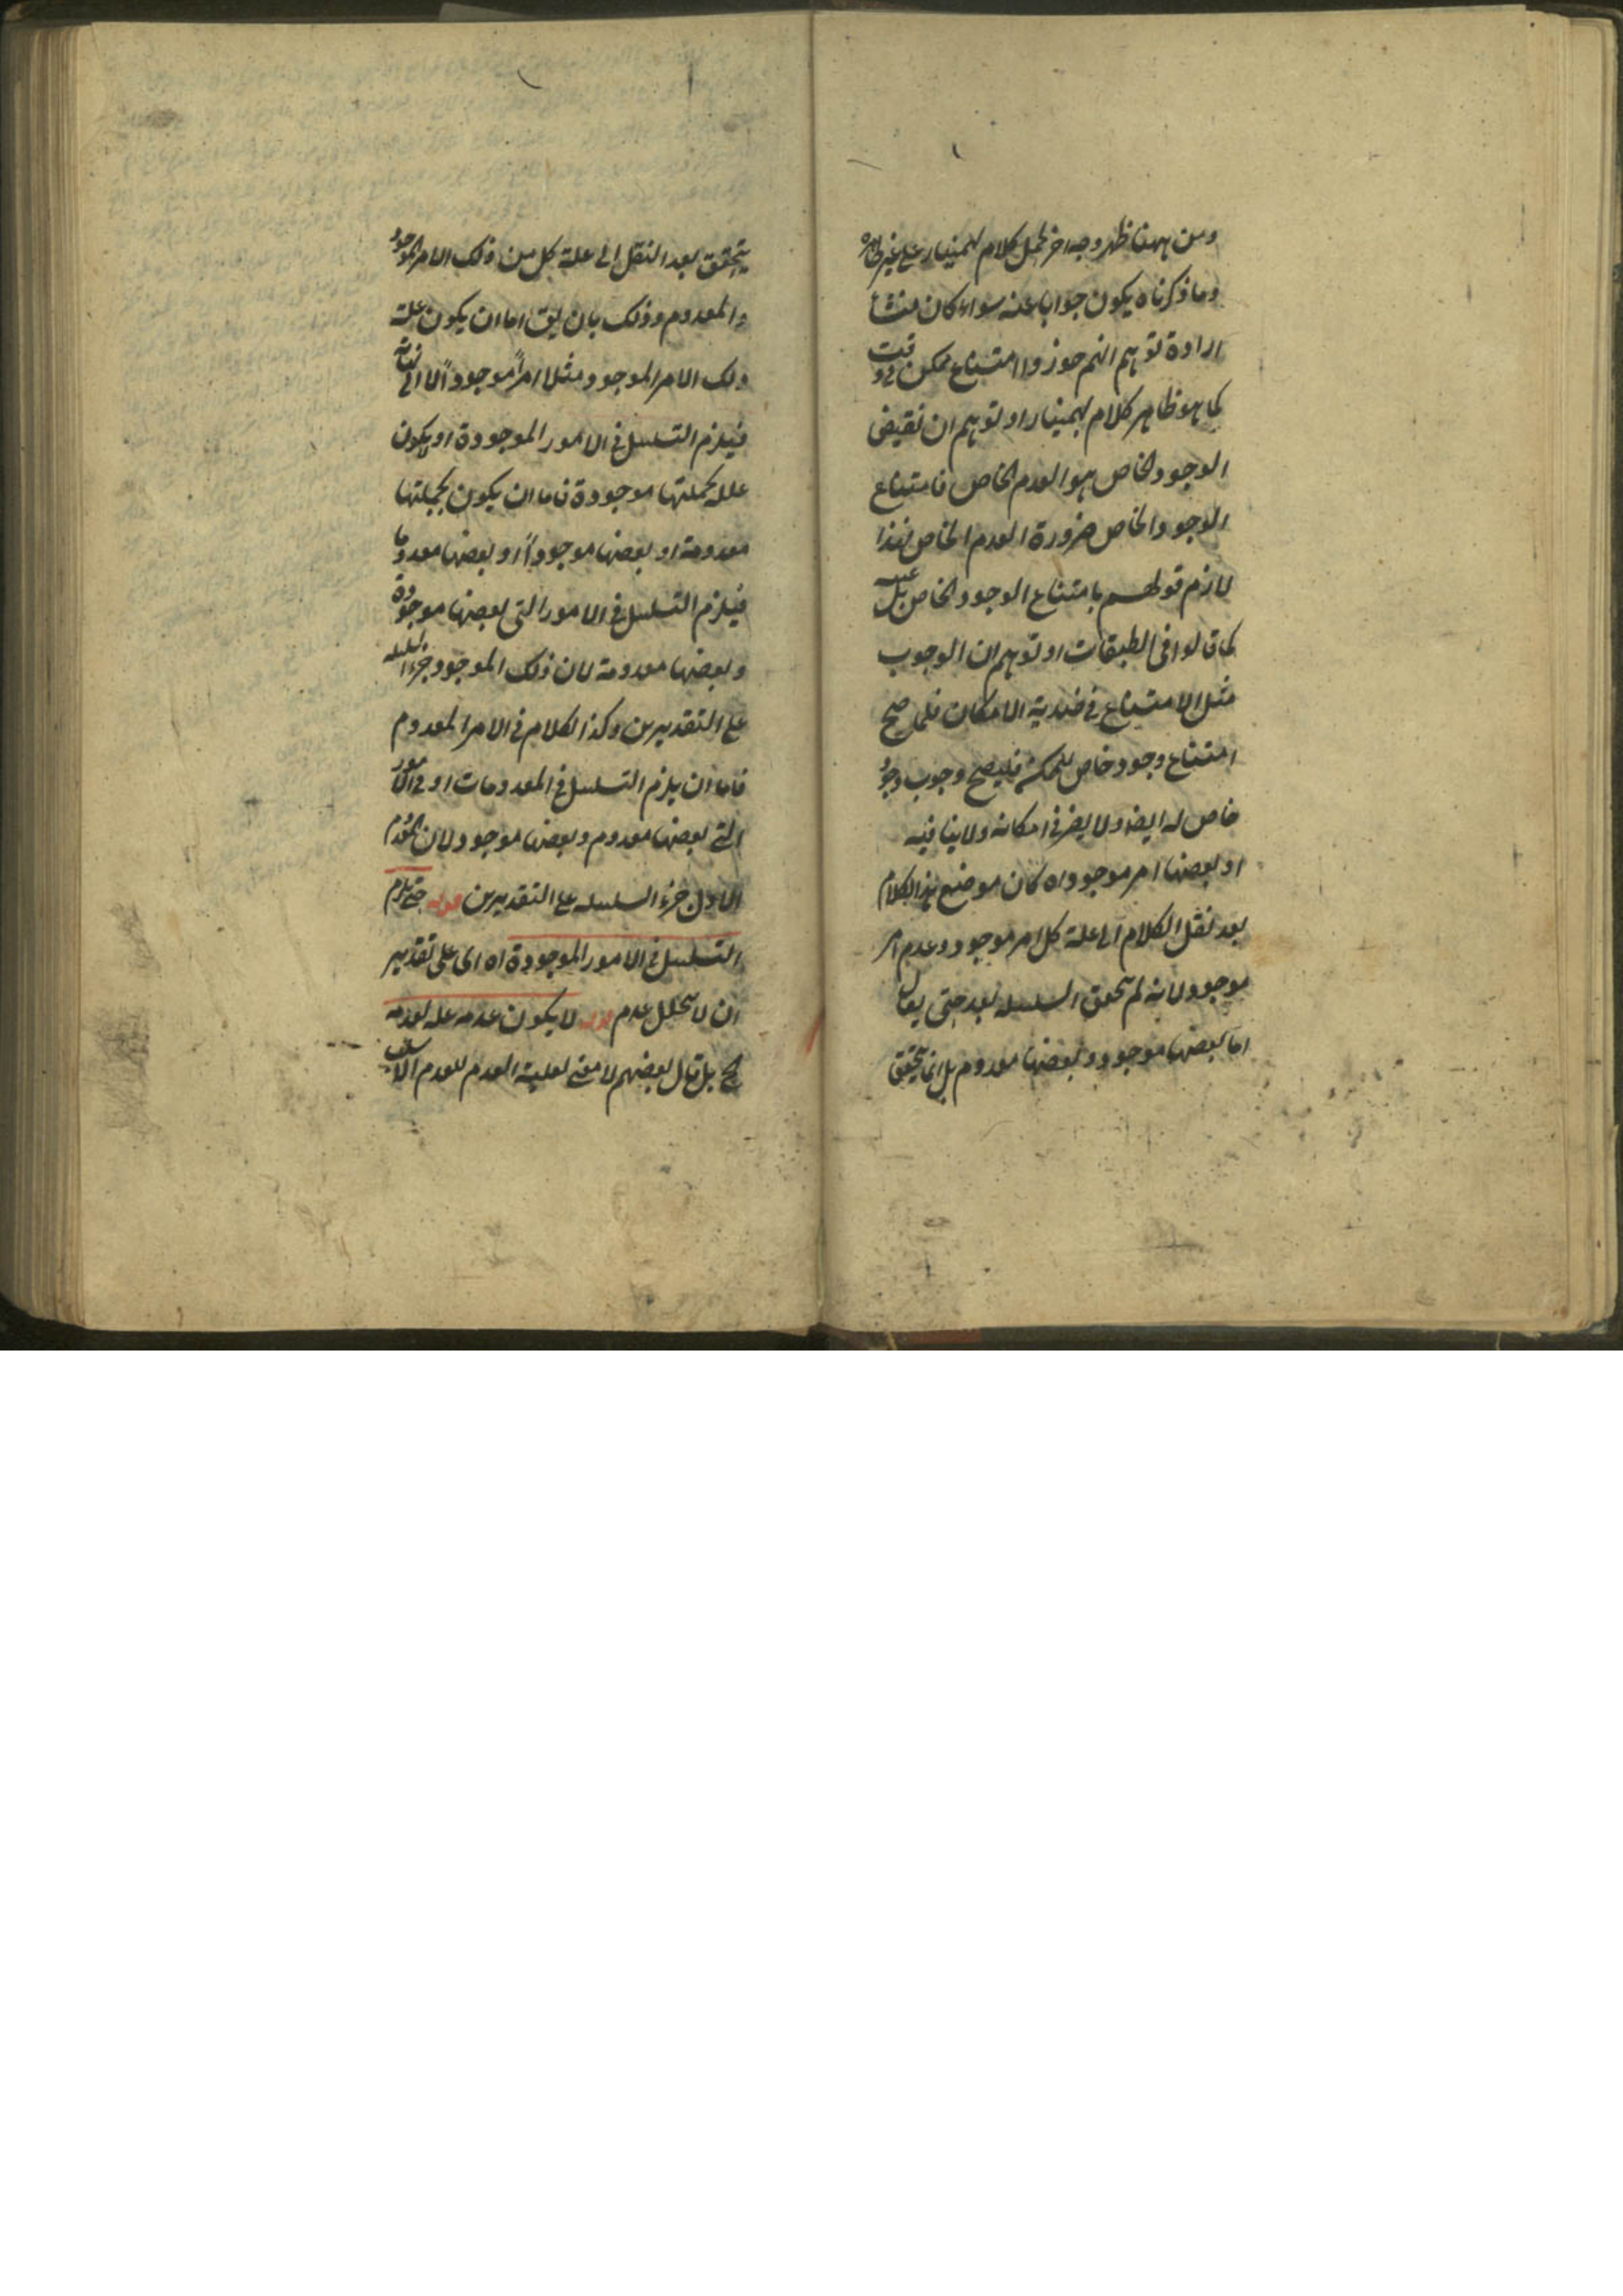 ومن ههنا ظهر وجه اخر لحمل كلام بهمنيار على غير ظاهره
وما ذكرناه يكون جوابا عنه سواء كان منشأ
ارادة توهم انهم جوزوا امتناع ممكن في وقت
كما هو ظاهر كلام بهمنيار او توهم ان نقيض
الوجود الخاص هو العدم الخاص فامتناع
الوجود الخاص ضرورة العدم الخاص فهذا
لازم قولهم بامتناع الوجود الخاص بل عينه
كما قالوا في الطبقات او توهم ان الوجوب
مثل الامتناع في ضدية الامكان فلما صح
امتناع وجود خاص للممكن فليصح وجوب وجود
خاص له ايضا ولا يضر في امكانه ولا ينافيه
او بعضها امر موجود اه كان موضع هذا الكلام
بعد نقل الكلام الى علة كل امر موجود وعدم امر
موجود لانه لم يتحقق السلسله بعد حتى يقال
اما بعضها موجود وبعضها معدوم بل انما يتحقق
يتحقق بعد النقل الى علة كل من ذلك الامر الموجود
والمعدوم وذلك بان يق اما ان يكون علة
ذلك الامر الموجود مثلا امراً موجوداً لا الى نهاية
فيلزم التسلسل في الامور الموجودة او لا يكون
علله بجملتها موجودة فاما ان يكون بجملتها
معدومة او بعضها موجوداً او بعضها معدوما
فيلزم التسلسل في الامور التي بعضها موجودة
وبعضها معدومة لان ذلك الموجود جزء السلسله
على التقديرين وكذا الكلام في الامر المعدوم
فاما ان يلزم التسلسل في المعدومات او في الامور
التي بعضها معدوم وبعضها موجود لان المعدوم
الاول جزء السلسله على التقديرين قوله حتى يلزم
التسلسل في الامور الموجودة اه اى على تقدير
ان لا يتخلل عدم قوله لا يكون عدمه علة لعدمه
اه بل قال بعضهم لا معنى لعلية العدم للعدم الا سلب